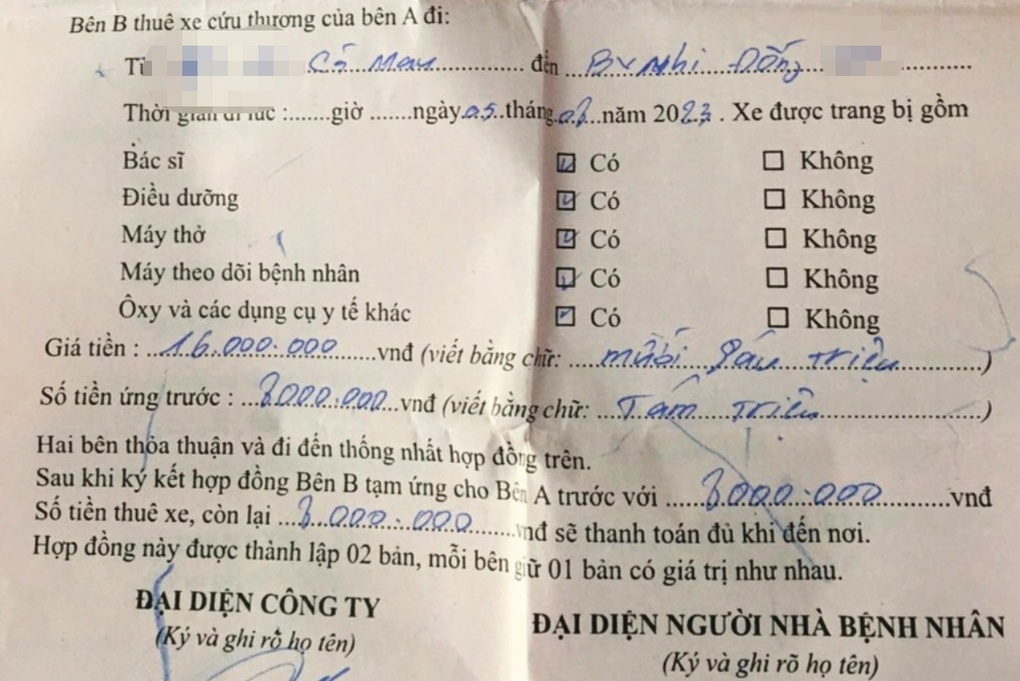 Bên B thuê xe cứu thương của bên A đi:
Từ Cà Mau đến BV Nhi Đồng
Thời gian đi lúc :.......giờ .......ngày 05 tháng 02 năm 2023. Xe được trang bị gồm
Bác sĩ ☑ Có ☐ Không
Điều dưỡng ☑ Có ☐ Không
Máy thở ☑ Có ☐ Không
Máy theo dõi bệnh nhân ☑ Có ☐ Không
Ôxy và các dụng cụ y tế khác ☑ Có ☐ Không
Giá tiền : 16.000.000 vnđ (viết bằng chữ: mười sáu triệu)
Số tiền ứng trước : 8000.000 vnđ (viết bằng chữ: Tám triệu)
Hai bên thỏa thuận và đi đến thống nhất hợp đồng trên.
Sau khi ký kết hợp đồng Bên B tạm ứng cho Bên A trước với 8.000.000 vnđ
Số tiền thuê xe, còn lại 8.000.000 vnđ sẽ thanh toán đủ khi đến nơi.
Hợp đồng này được thành lập 02 bản, mỗi bên giữ 01 bản có giá trị như nhau.
ĐẠI DIỆN CÔNG TY
(Ký và ghi rõ họ tên)
ĐẠI DIỆN NGƯỜI NHÀ BỆNH NHÂN
(Ký và ghi rõ họ tên)